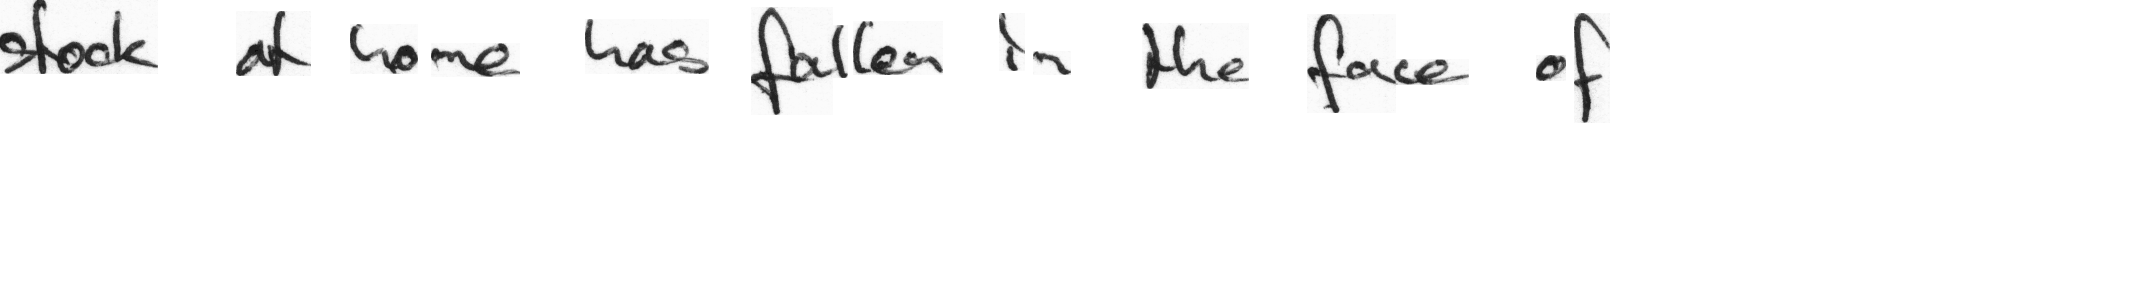 stock at home has fallen in the face of